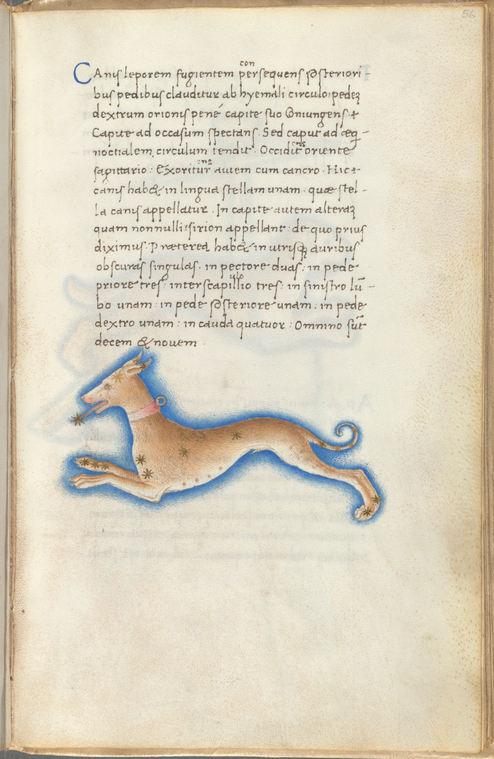 56
con
CAnis leporem fugientem persequens posteriori-
bus pedibus clauditur ab hyemali circulo: pedeʒ
dextrum orionis penè capite suo coniungens ⁊
Capite ad occasum spectans. Sed caput ad ęq-
noctialem circulum tendit. Occidit oriente
sagittario. Exoritur autem cum cancro. Hic ⁊
canis habet in lingua stellam unam. quae stel-
la canis appellatur. In capite autem alteraʒ
quam nonnulli sirion appellant. de quo prius
diximus. Praeterea habet in utrisqʒ auribus
obscuras singulas. in pectore duas. in pede
priore tres. inter scapillio tres. in sinistro lū-
bo unam. in pede posteriore unam. in pede
dextro unam. in cauda quatuor. Omnino sūt
decem & novem.